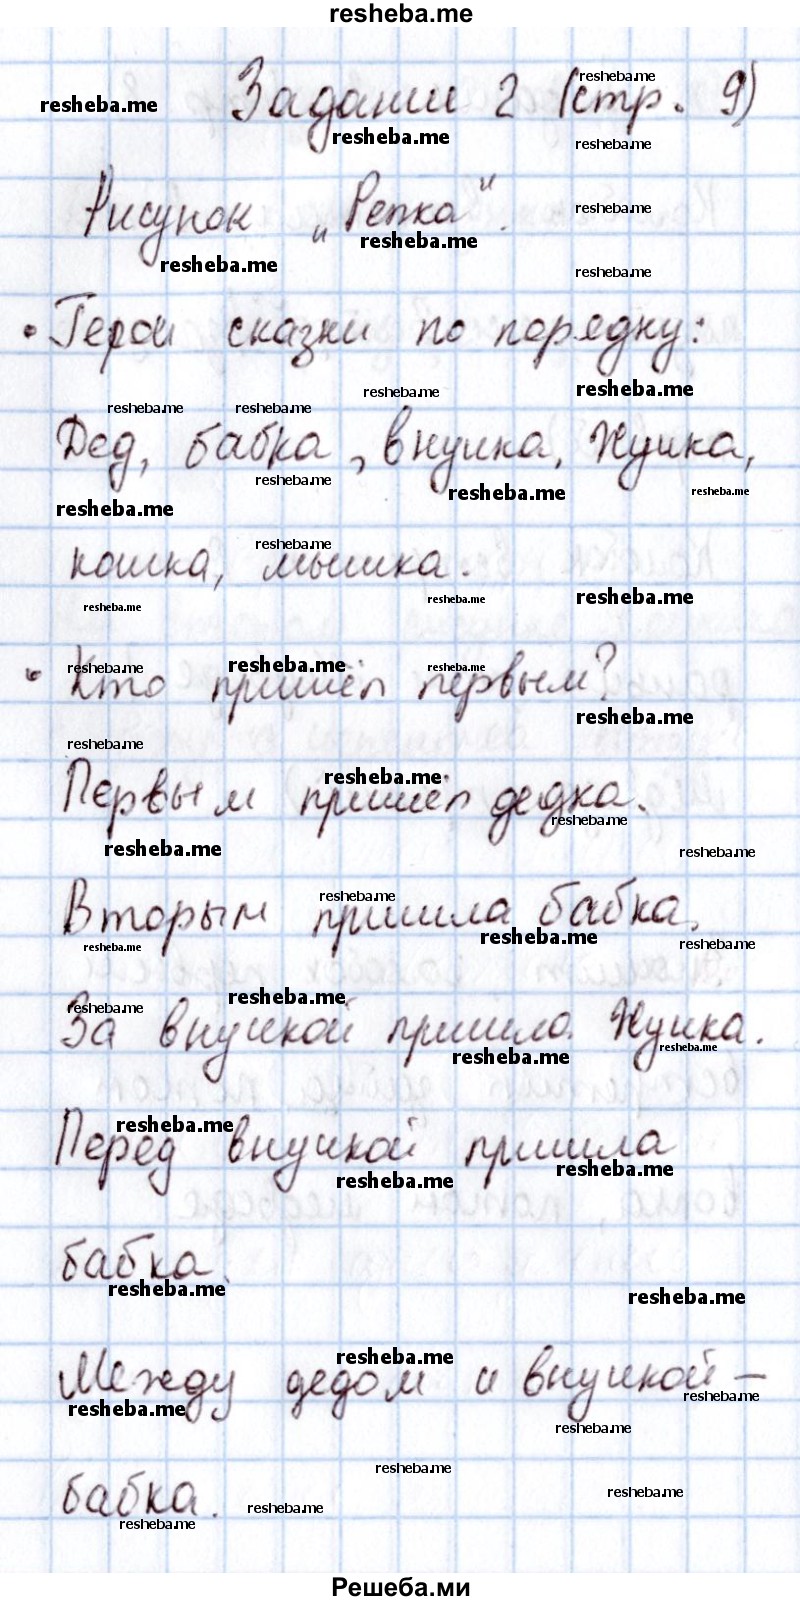 resheba.me
Задание 2 (стр. 9)
Рисунок „Репка“.
• Герои сказки по порядку:
Дед, бабка, внучка, Жучка,
кошка, мышка.
• Кто пришёл первым?
Первым пришёл дедка.
Вторым пришла бабка.
За внучкой пришла Жучка.
Перед внучкой пришла
бабка.
Между дедом и внучкой –
бабка.
Решеба.ми